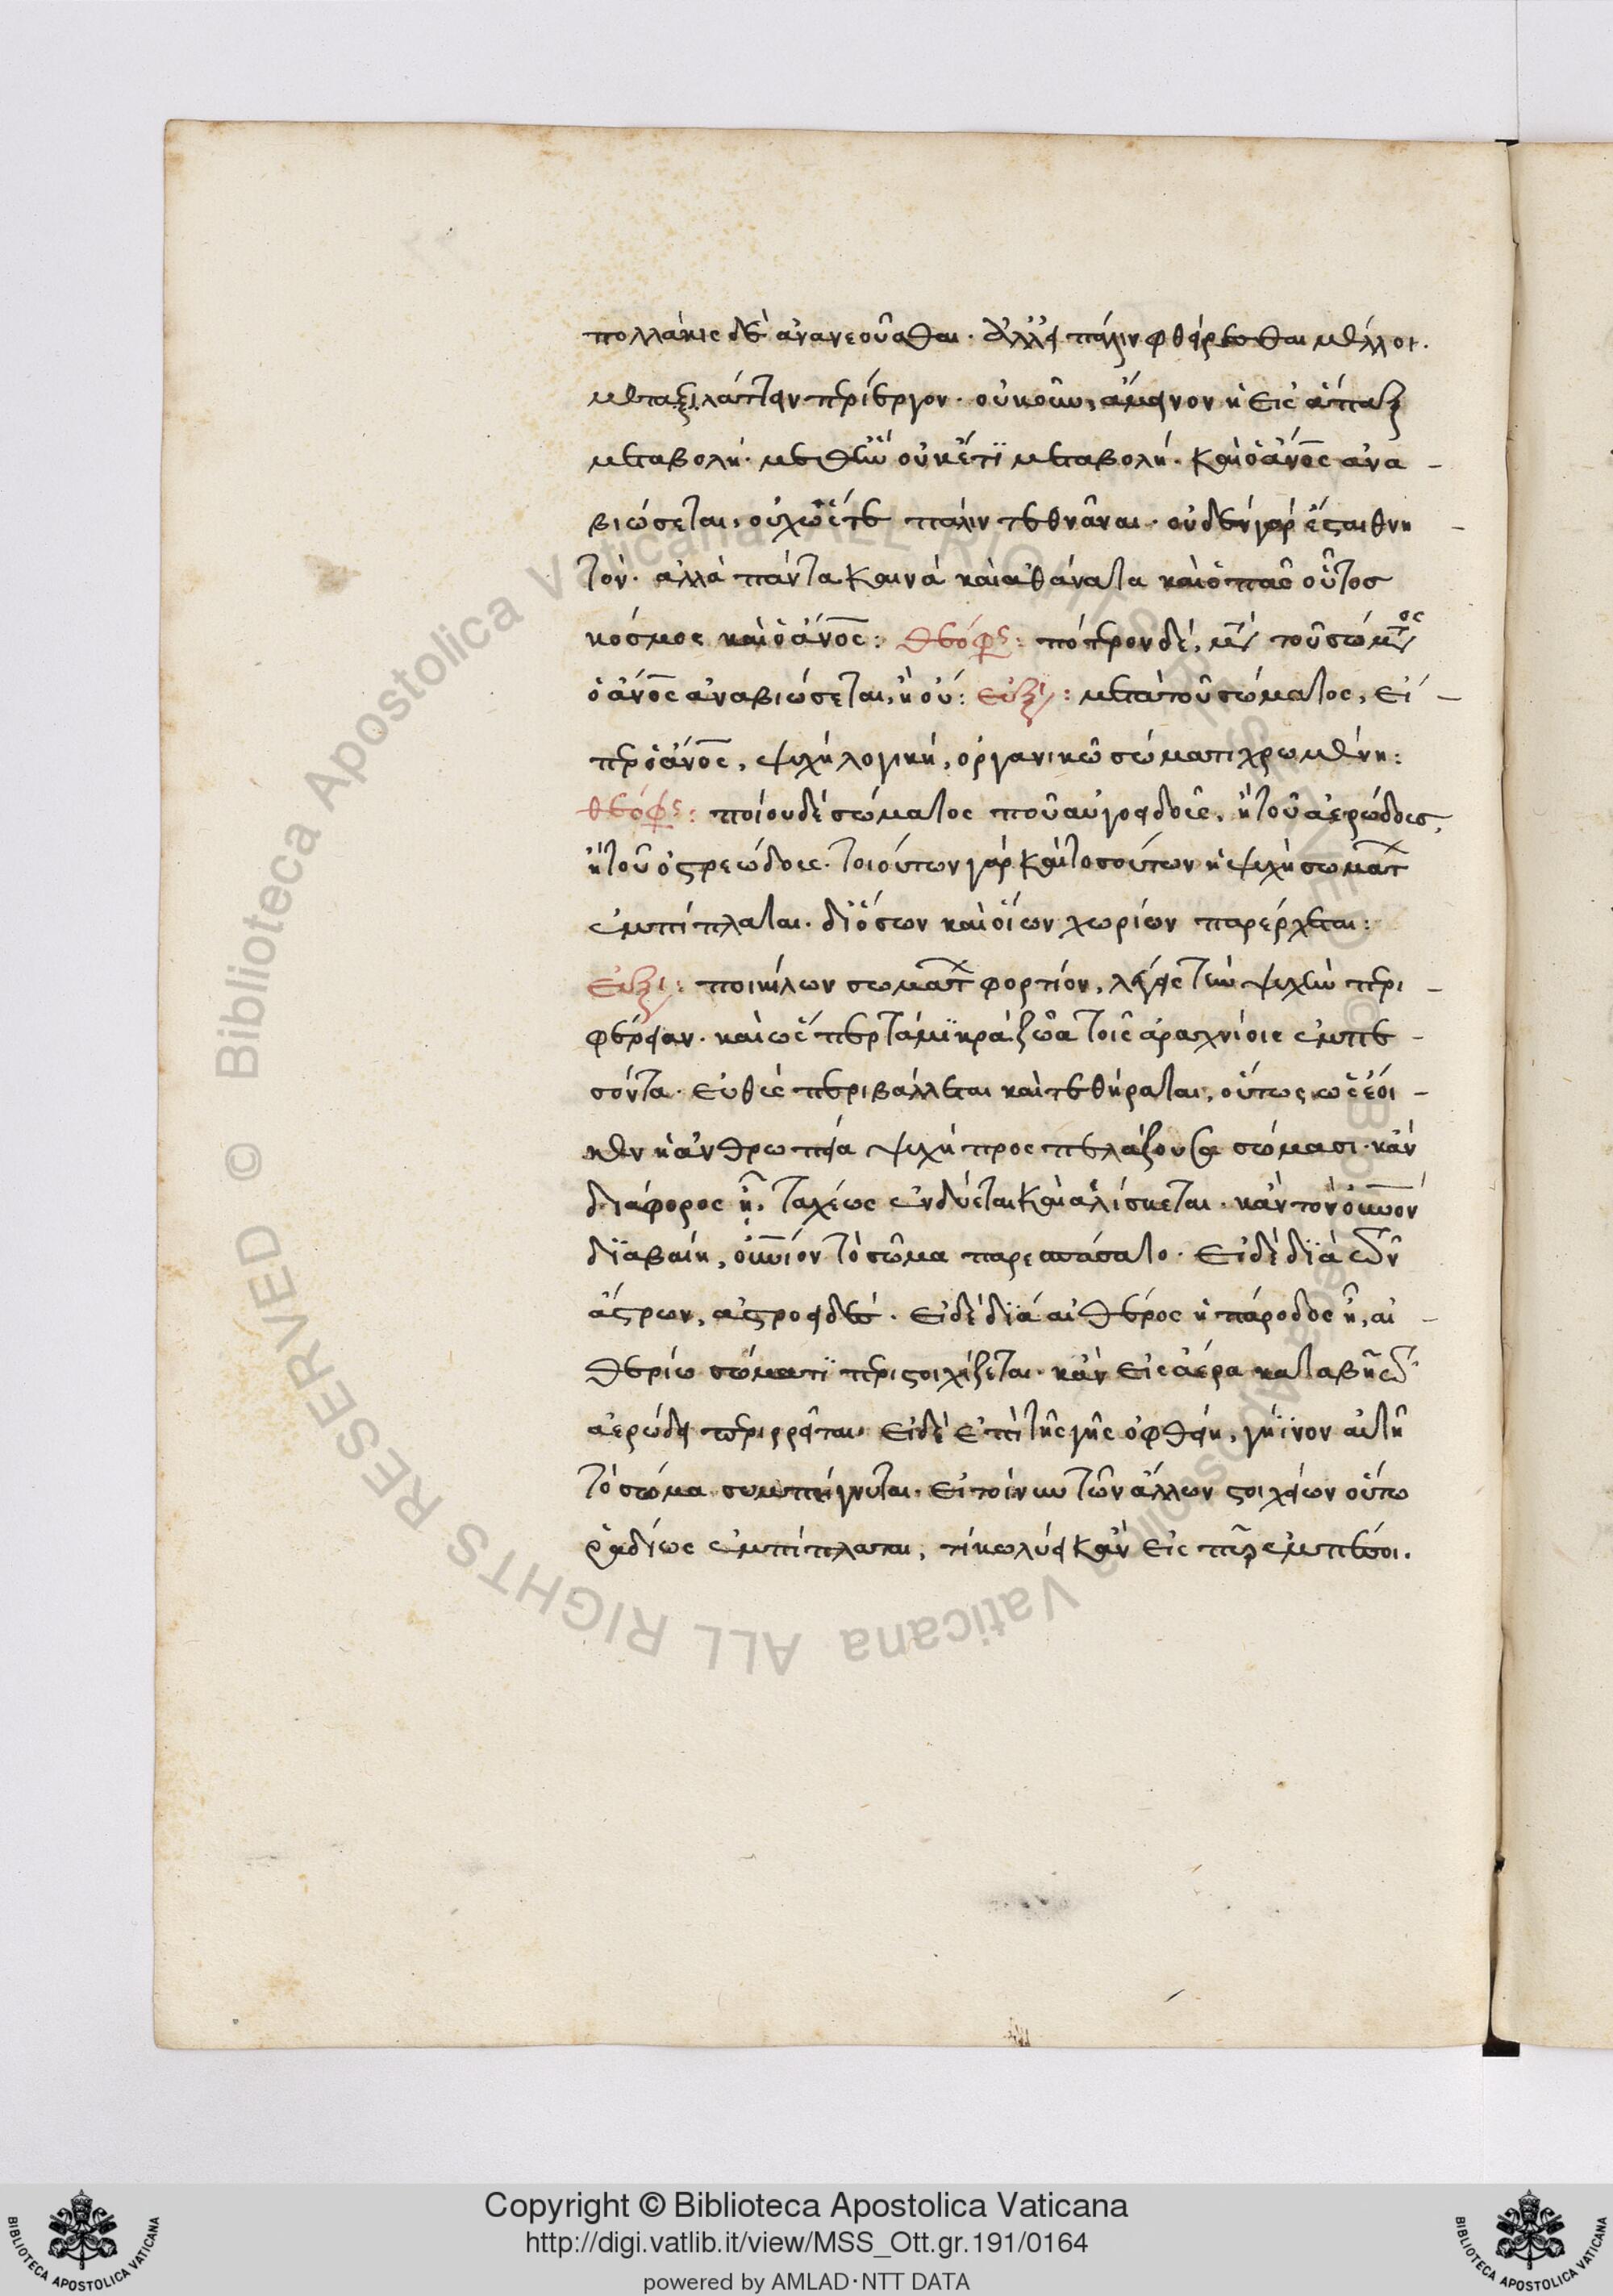 πολλάκις δεῖ ἀνανεοῦσθαι. ἀλλ' εἰ πάλιν φθείρεσθαι μέλλοι.
μεταξυλάττειν περίεργον. οὐκοῦν, ἄμεινον ἡ εἰς ἅπαξ
μεταβολή. μεθ' ἣν οὐκέτι μεταβολή. καὶ ὁ ἄνος ἀνα-
βιώσεται, οὐχ ὥστε πάλιν τεθνᾶναι. οὐδὲν γὰρ ἔσται θνη-
τόν. ἀλλὰ πάντα καινὰ καὶ ἀθάνατα καὶ ὁ πᾶς οὗτος
κόσμος καὶ ὁ ἄνος: Θεόφρς: πότερον δὲ, μετὰ τοῦ σώματος
ὁ ἄνος ἀναβιώσεται, ἢ οὔ: Εὐξι: μετὰ τοῦ σώματος, εἴ-
περ ὁ ἄνος, ψυχὴ λογικὴ, ὀργανικῷ σώματι χρωμένη:
Θεόφρς: ποίου δὲ σώματος τοῦ αὐγοειδοῦς, ἢ τοῦ ἀερώδους,
ἢ τοῦ ὀστρεώδους. τοιούτων γὰρ καὶ τοσούτων ἡ ψυχὴ σωμάτων
ἐμπίπλαται. δι' ὅσων καὶ οἵων χωρίων παρέρχεται:
Εὐξι: ποικίλων σωμάτων φορτίον, λέγεις τὴν ψυχὴν περι-
φέρειν. καὶ ὥσπερ τὰ μικρὰ ζῶα τοῖς ἀραχνίοις ἐμπε-
σόντα. εὐθὺς περιβάλλεται καὶ τεθήραται, οὕτως ὡς ἔοι-
κεν ἡ ἀνθρωπεία ψυχὴ προσπελάζουσα σώμασι. κἂν
διάφορος ᾖ, ταχέως ἐνδύεται καὶ ἁλίσκεται. κἂν τὸν οὐνον
διαβαίη, οὐνιον τὸ σῶμα παρεσπάσατο. εἰ δὲ διὰ τῶν
ἄστρων, ἀστροειδές. εἰ δὲ διὰ αἰθέρος ἡ πάροδος ἦν, αἰ-
θερίω σώματι περιστοιχίζεται. κἂν εἰς ἀέρα καταβῆ τῶ
ἀερώδει περιρρεῖται. εἰ δὲ ἐπὶ τῆς γῆς ὀφθείη, γήϊνον αὐτῆ
τὸ σῶμα συμπήγνυται. εἰ τοίνυν τῶν ἄλλων στοιχείων οὕτω
ῥαδίως ἐμπίπλαται, τί κωλύει κἂν εἰς πῦρ ἐμπέσοι.
Copyright © Biblioteca Apostolica Vaticana
http://digi.vatlib.it/view/MSS_Ott.gr.191/0164
powered by AMLAD·NTT DATA
BIBLIOTECA APOSTOLICA VATICANA
BIBLIOTECA APOSTOLICA VATICANA
© Biblioteca Apostolica Vaticana ALL RIGHTS RESERVED © Biblioteca Apostolica Vaticana ALL RIGHTS RESERVED